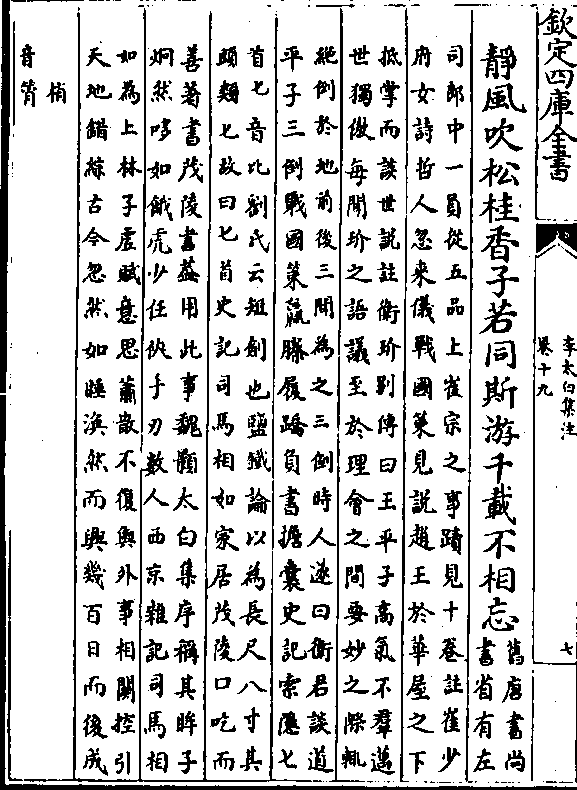 欽定四庫全書
李太白集注
卷十九
七
靜風吹松桂香子若同斯游千載不相忘
舊唐書尚
書省有左
司郎中一員從五品上崔宗之事蹟見十卷註崔少
府女詩哲人忽来儀戰國策見說趙王於華屋之下
抵掌而談世說註衛玠別傳曰王平子高氣不羣邁
世獨傲每聞玠之語議至於理會之間要妙之際輒
絕倒於地前後三聞為之三倒時人遂曰衛君談道
平子三倒戰國策羸縢履蹻負書擔囊史記索隱匕
首匕音比劉氏云短劍也鹽鐵論以為長尺八寸其
頭類匕故曰匕首史記司馬相如家居茂陵口吃而
善著書茂陵書蓋用此事魏顥太白集序稱其眸子
炯然哆如餓虎少任俠手刃數人西京雜記司馬相
如為上林子虛賦意思蕭散不復與外事相關控引
天地錯綜古今忽然如睡渙然而興幾百日而後成
音筲